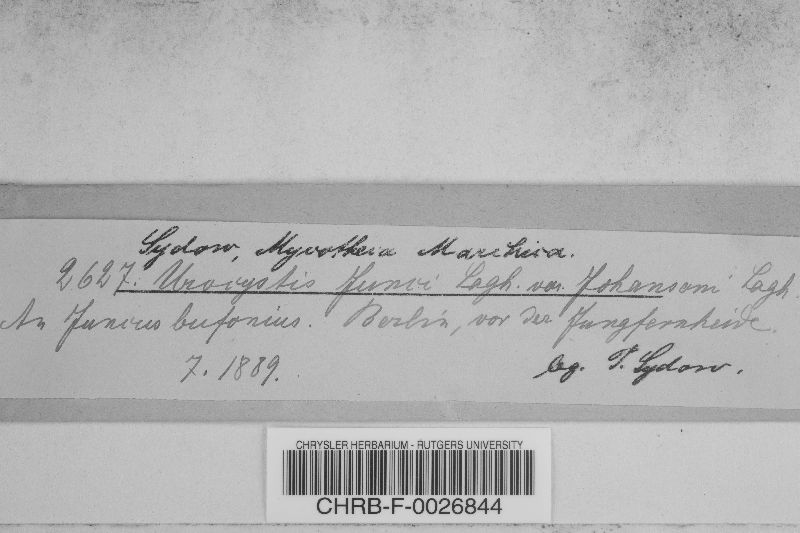 Sydow, Mycotheca Marchica.
2627. Urocystis Junci Lagh. var. Johansoni Lagh.
An Juncus bufonius. Berlin, vor der Jungfernheide.
7. 1889. leg. P. Sydow.
CHRYSLER HERBARIUM - RUTGERS UNIVERSITY
CHRB-F-0026844